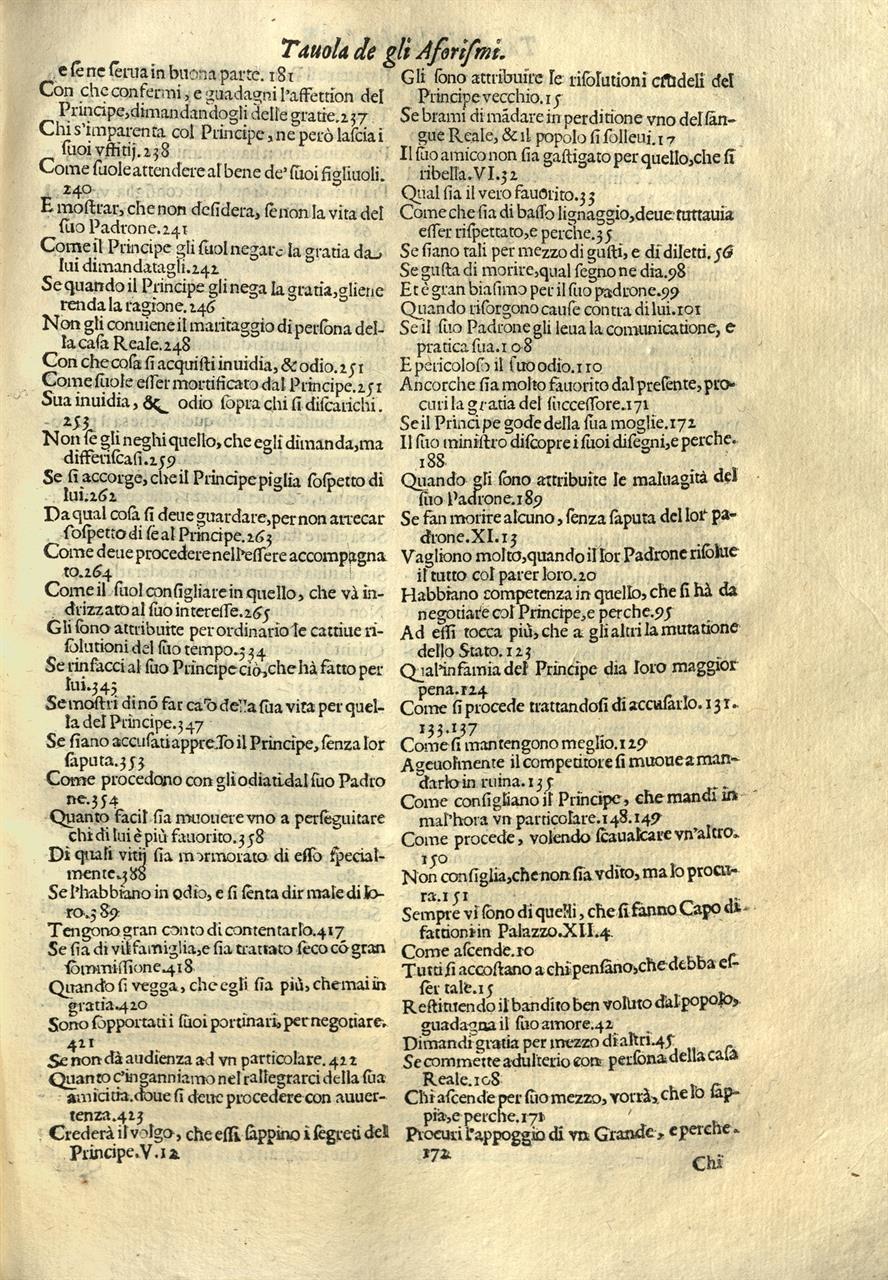 Tauola de gli Aforiſmi.
e ſe ne ſerua in buona parte. 181
Con che confermi, e guadagni l'affettion del
Principe, dimandandogli delle gratie. 237
Chi s'imparenta col Principe, ne però laſcia i
ſuoi vffitij. 238
Come ſuole attendere al bene de' ſuoi figliuoli.
240
E moſtrar, che non deſidera, ſe non la vita del
ſuo Padrone. 241
Come il Principe gli ſuol negare la gratia da
lui dimandatagli. 242
Se quando il Principe gli nega la gratia, gliene
renda la ragione. 246
Non gli conuiene il maritaggio di perſona del-
la caſa Reale. 248
Con che coſa ſi acquiſti inuidia, & odio. 251
Come ſuole eſſer mortificato dal Principe. 251
Sua inuidia, & odio ſopra chi ſi diſcarichi.
253
Non ſe gli neghi quello, che egli dimanda, ma
differiſcaſi. 259
Se ſi accorge, che il Principe piglia ſoſpetto di
lui. 262
Da qual coſa ſi deue guardare, per non arrecar
ſoſpetto di ſe al Principe. 263
Come deue procedere nell'eſſere accompagna
to. 264
Come il ſuol conſigliare in quello, che và in-
drizzato al ſuo intereſſe. 265
Gli ſono attribuite per ordinario le cattiue ri-
ſolutioni del ſuo tempo. 334
Se rinfacci al ſuo Principe ciò, che hà fatto per
lui. 343
Se moſtri di nō far caſo della ſua vita per quel-
la del Principe. 347
Se ſiano accuſati appreſſo il Principe, ſenza lor
ſaputa. 353
Come procedono con gli odiati dal ſuo Padro
ne. 354
Quanto facil ſia muouere vno a perſeguitare
chi di lui è più fauorito. 358
Di quali vitij ſia mormorato di eſſo ſpecial-
mente. 388
Se l'habbiano in odio, e ſi ſenta dir male di lo-
ro. 389
Tengono gran conto di contentarlo. 417
Se ſia di vil famiglia, e ſia trattato ſeco cō gran
ſommiſſione. 418
Quando ſi vegga, che egli ſia più, che mai in
gratia. 420
Sono ſopportati i ſuoi portinari, per negotiare.
421
Se non dà audienza ad vn particolare. 422
Quanto c'inganniamo nel rallegrarci della ſua
amicitia. doue ſi deue procedere con auuer-
tenza. 423
Crederà il volgo, che eſſi ſappino i ſegreti del
Principe. V. 12
Gli ſono attribuire le riſolutioni crudeli del
Principe vecchio. 15
Se brami di mādare in perditione vno del ſan-
gue Reale, & il popolo ſi ſolleui. 17
Il ſuo amico non ſia gaſtigato per quello, che ſi
ribella. VI. 32
Qual ſia il vero fauorito. 33
Come che ſia di baſſo lignaggio, deue tuttauia
eſſer riſpettato, e perche. 35
Se ſiano tali per mezzo di guſti, e di diletti. 56
Se guſta di morire, qual ſegno ne dia. 98
Et è gran biaſimo per il ſuo padrone. 99
Quando riſorgono cauſe contra di lui. 101
Se il ſuo Padrone gli leua la comunicatione, e
pratica ſua. 108
E pericoloſo il ſuo odio. 110
Ancorche ſia molto fauorito dal preſente, pro-
curi la gratia del ſucceſſore. 171
Se il Principe gode della ſua moglie. 172
Il ſuo miniſtro diſcopre i ſuoi diſegni, e perche.
188
Quando gli ſono attribuite le maluagità del
ſuo Padrone. 189
Se fan morire alcuno, ſenza ſaputa del lor pa-
drone. XI. 13
Vagliono molto, quando il lor Padrone riſolue
il tutto col parer loro. 20
Habbiano competenza in quello, che ſi hà da
negotiare col Principe, e perche. 95
Ad eſſi tocca più, che a gli altri la mutatione
dello Stato. 123
Qual'infamia del Principe dia loro maggior
pena. 124
Come ſi procede trattandoſi di accuſarlo. 131.
133. 137
Come ſi mantengono meglio. 129
Ageuolmente il competitore ſi muoue a man-
darlo in ruina. 135
Come conſigliano il Principe, che mandi in
mal'hora vn particolare. 148. 149
Come procede, volendo ſcaualcare vn'altro.
150
Non conſiglia, che non ſia vdito, ma lo procu-
ra. 151
Sempre vi ſono di quelli, che ſi fanno Capo di
fattioni in Palazzo. XII. 4
Come aſcende. 10
Tutti ſi accoſtano a chi penſano, che debba eſ-
ſer tale. 15
Reſtituendo il bandito ben voluto dal popolo,
guadagna il ſuo amore. 42
Dimandi gratia per mezzo di altri. 45
Se commette adulterio con perſona della caſa
Reale. 108
Chi aſcende per ſuo mezzo, vorrà, che lo ſap-
pia, e perche. 171
Procuri l'appoggio di vn Grande, e perche.
172
Chi